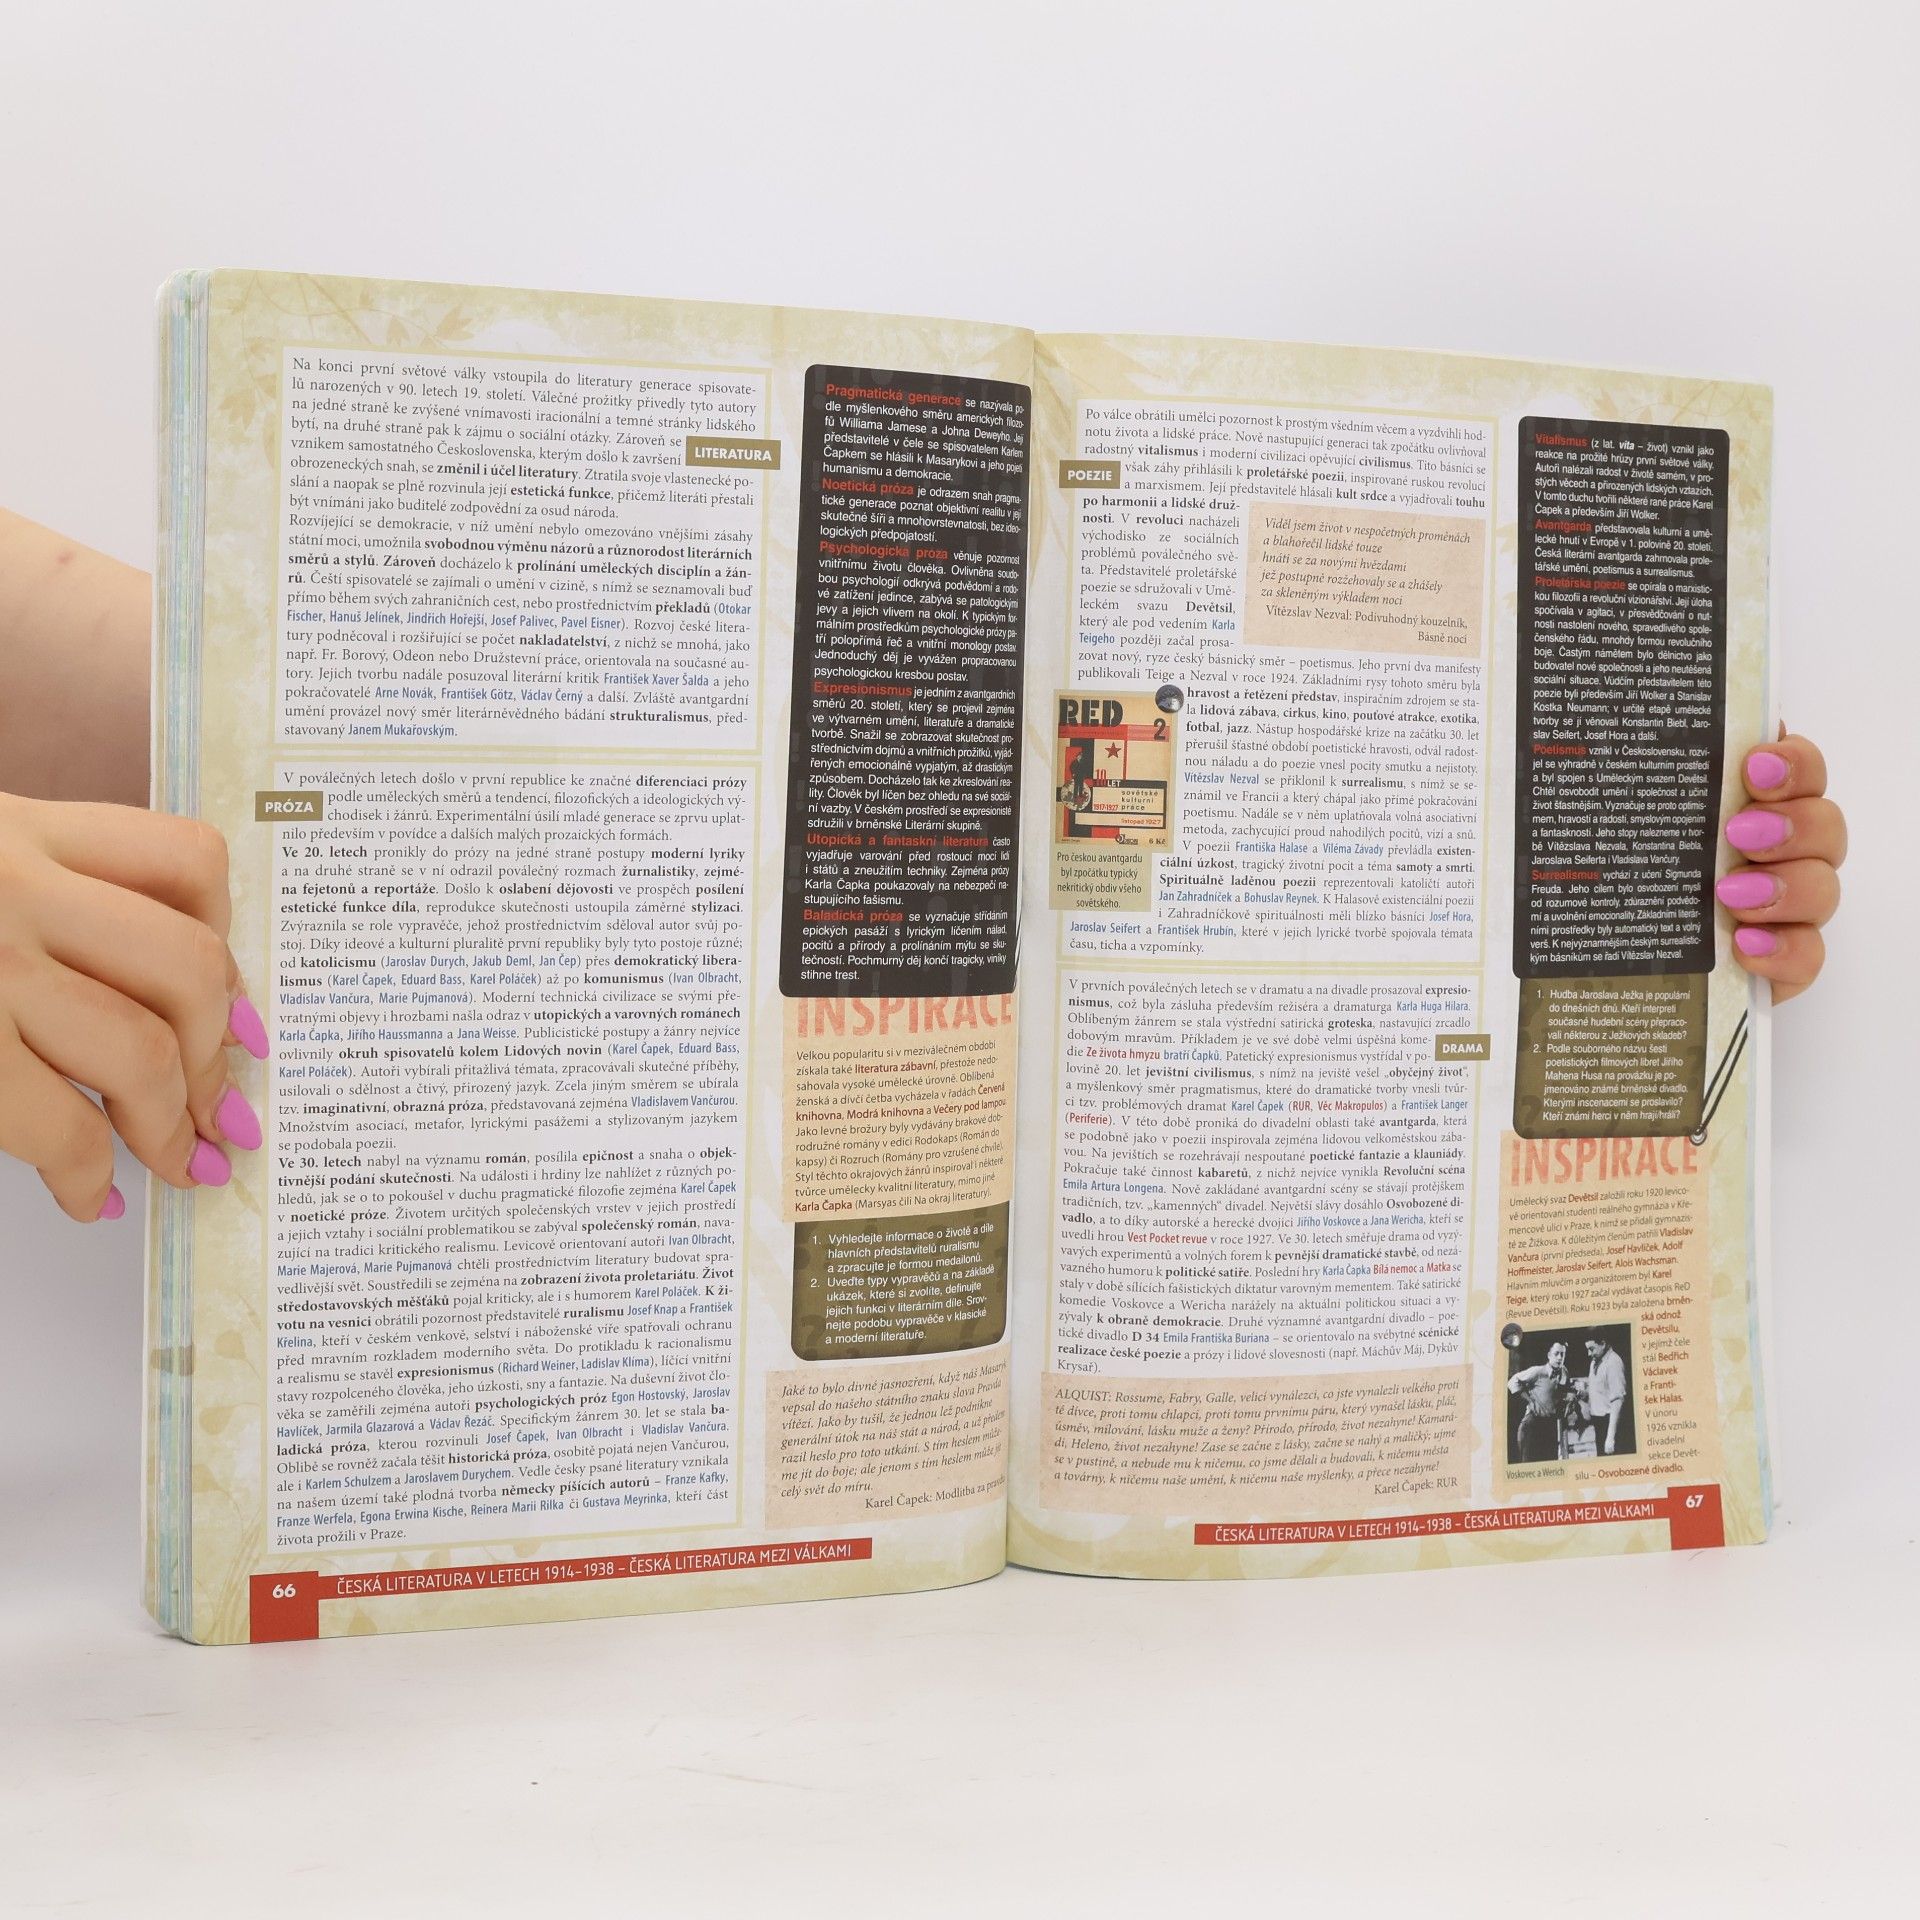 Na konci první světové války vstoupila do literatury generace spisovate-
lů narozených v 90. letech 19. století. Válečné prožitky přivedly tyto autory
na jedné straně ke zvýšené vnímavosti iracionální a temné stránky lidského
bytí, na druhé straně pak k zájmu o sociální otázky. Zároveň se
LITERATURA
vznikem samostatného Československa, kterým došlo k završení
obrozeneckých snah, se změnil i účel literatury. Ztratila svoje vlastenecké po-
slání a naopak se plně rozvinula její estetická funkce, přičemž literáti přestali
být vnímáni jako buditelé zodpovědní za osud národa.
Rozvíjející se demokracie, v níž umění nebylo omezováno vnějšími zásahy
státní moci, umožnila svobodnou výměnu názorů a různorodost literárních
směrů a stylů. Zároveň docházelo k prolínání uměleckých disciplín a žán-
rů. Čeští spisovatelé se zajímali o umění v cizině, s nímž se seznamovali buď
přímo během svých zahraničních cest, nebo prostřednictvím překladů (Otokar
Fischer, Hanuš Jelínek, Jindřich Hořejší, Josef Palivec, Pavel Eisner). Rozvoj české litera-
tury podněcoval i rozšiřující se počet nakladatelství, z nichž se mnohá, jako
např. Fr. Borový, Odeon nebo Družstevní práce, orientovala na současné au-
tory. Jejich tvorbu nadále posuzoval literární kritik František Xaver Šalda a jeho
pokračovatelé Arne Novák, František Götz, Václav Černý a další. Zvláště avantgardní
umění provázel nový směr literárněvědného bádání strukturalismus, před-
stavovaný Janem Mukařovským.
V poválečných letech došlo v první republice ke značné diferenciaci prózy
PRÓZA
podle uměleckých směrů a tendencí, filozofických a ideologických vý-
chodisek i žánrů. Experimentální úsilí mladé generace se zprvu uplat-
nilo především v povídce a dalších malých prozaických formách.
Ve 20. letech pronikly do prózy na jedné straně postupy moderní lyriky
a na druhé straně se v ní odrazil poválečný rozmach žurnalistiky, zejmé-
na fejetonů a reportáže. Došlo k oslabení dějovosti ve prospěch posílení
estetické funkce díla, reprodukce skutečnosti ustoupila záměrné stylizaci.
Zvýraznila se role vypravěče, jehož prostřednictvím sděloval autor svůj po-
stoj. Díky ideové a kulturní pluralitě první republiky byly tyto postoje různé;
od katolicismu (Jaroslav Durych, Jakub Deml, Jan Čep) přes demokratický libera-
lismus (Karel Čapek, Eduard Bass, Karel Poláček) až po komunismus (Ivan Olbracht,
Vladislav Vančura, Marie Pujmanová). Moderní technická civilizace se svými pře-
vratnými objevy i hrozbami našla odraz v utopických a varovných románech
Karla Čapka, Jiřího Haussmanna a Jana Weisse. Publicistické postupy a žánry nejvíce
ovlivnily okruh spisovatelů kolem Lidových novin (Karel Čapek, Eduard Bass,
Karel Poláček). Autoři vybírali přitažlivá témata, zpracovávali skutečné příběhy,
usilovali o sdělnost a čtivý, přirozený jazyk. Zcela jiným směrem se ubírala
tzv. imaginativní, obrazná próza, představovaná zejména Vladislavem Vančurou.
Množstvím asociací, metafor, lyrickými pasážemi a stylizovaným jazykem
se podobala poezii.
Ve 30. letech nabyl na významu román, posílila epičnost a snaha o objek-
tivnější podání skutečnosti. Na události i hrdiny lze nahlížet z různých po-
hledů, jak se o to pokoušel v duchu pragmatické filozofie zejména Karel Čapek
v noetické próze. Životem určitých společenských vrstev v jejich prostředí
a jejich vztahy i sociální problematikou se zabýval společenský román, nava-
zující na tradici kritického realismu. Levicově orientovaní autoři Ivan Olbracht,
Marie Majerová, Marie Pujmanová chtěli prostřednictvím literatury budovat spra-
vedlivější svět. Soustředili se zejména na zobrazení života proletariátu. Život
středostavovských měšťáků pojal kriticky, ale i s humorem Karel Poláček. K ži-
votu na vesnici obrátili pozornost představitelé ruralismu Josef Knap a František
Křelina, kteří v českém venkově, selství i náboženské víře spatřovali ochranu
před mravním rozkladem moderního světa. Do protikladu k racionalismu
a realismu se stavěl expresionismus (Richard Weiner, Ladislav Klíma), líčící vnitřní
stavy rozpolceného člověka, jeho úzkosti, sny a fantazie. Na duševní život člo-
věka se zaměřili zejména autoři psychologických próz Egon Hostovský, Jaroslav
Havlíček, Jarmila Glazarová a Václav Řezáč. Specifickým žánrem 30. let se stala ba-
ladická próza, kterou rozvinuli Josef Čapek, Ivan Olbracht i Vladislav Vančura.
Oblibě se rovněž začala těšit historická próza, osobitě pojatá nejen Vančurou,
ale i Karlem Schulzem a Jaroslavem Durychem. Vedle česky psané literatury vznikala
na našem území také plodná tvorba německy píšících autorů – Franze Kafky,
Franze Werfela, Egona Erwina Kische, Reinera Marii Rilka či Gustava Meyrinka, kteří část
života prožili v Praze.
Pragmatická generace se nazývala po-
dle myšlenkového směru amerických filozo-
fů Williama Jamese a Johna Deweyho. Její
představitelé v čele se spisovatelem Karlem
Čapkem se hlásili k Masarykovi a jeho pojetí
humanismu a demokracie.
Noetická próza je odrazem snah pragma-
tické generace poznat objektivní realitu v její
skutečné šíři a mnohovrstevnatosti, bez ideo-
logických předpojatostí.
Psychologická próza věnuje pozornost
vnitřnímu životu člověka. Ovlivněna soudo-
bou psychologií odkrývá podvědomí a rodo-
vé zatížení jedince, zabývá se patologickými
jevy a jejich vlivem na okolí. K typickým for-
málním prostředkům psychologické prózy pa-
tří polopřímá řeč a vnitřní monology postav.
Jednoduchý děj je vyvážen propracovanou
psychologickou kresbou postav.
Expresionismus je jedním z avantgardních
směrů 20. století, který se projevil zejména
ve výtvarném umění, literatuře a dramatické
tvorbě. Snažil se zobrazovat skutečnost pro-
střednictvím dojmů a vnitřních prožitků, vyjád-
řených emocionálně vypjatým, až drastickým
způsobem. Docházelo tak ke zkreslování rea-
lity. Člověk byl líčen bez ohledu na své sociál-
ní vazby. V českém prostředí se expresionisté
sdružili v brněnské Literární skupině.
Utopická a fantaskní literatura často
vyjadřuje varování před rostoucí mocí lidí
i států a zneužitím techniky. Zejména prózy
Karla Čapka poukazovaly na nebezpečí na-
stupujícího fašismu.
Baladická próza se vyznačuje střídáním
epických pasáží s lyrickým líčením nálad,
pocitů a přírody a prolínáním mýtu se sku-
tečností. Pochmurný děj končí tragicky, viníky
stihne trest.
INSPIRACE
Velkou popularitu si v meziválečném období
získala také literatura zábavní, přestože nedo-
sahovala vysoké umělecké úrovně. Oblíbená
ženská a dívčí četba vycházela v řadách Červená
knihovna, Modrá knihovna a Večery pod lampou
Jako levné brožury byly vydávány brakové dob-
rodružné romány v edici Rodokaps (Román do
kapsy) či Rozruch (Romány pro vzrušené chvíle).
Styl těchto okrajových žánrů inspiroval i některé
tvůrce umělecky kvalitní literatury, mimo jiné
Karla Čapka (Marsyas čili Na okraj literatury).
1. Vyhledejte informace o životě a díle
hlavních představitelů ruralismu
a zpracujte je formou medailonů.
2. Uveďte typy vypravěčů a na základě
ukázek, které si zvolíte, definujte
jejich funkci v literárním díle. Srov-
nejte podobu vypravěče v klasické
a moderní literatuře.
Jaké to bylo divné jasnozření, když náš Masaryk
vepsal do našeho státního znaku slova Pravda
vítězí. Jako by tušil, že jednou lež podnikne
generální útok na náš stát a národ, a už předem
razil heslo pro toto utkání. S tím heslem může-
me jít do boje; ale jenom s tím heslem může jít
celý svět do míru.
Karel Čapek: Modlitba za pravdu
66
ČESKÁ LITERATURA V LETECH 1914–1938 – ČESKÁ LITERATURA MEZI VÁLKAMI
Po válce obrátili umělci pozornost k prostým všedním věcem a vyzdvihli hod-
notu života a lidské práce. Nově nastupující generaci tak zpočátku ovlivňoval
radostný vitalismus i moderní civilizaci opěvující civilismus. Tito básníci se
POEZIE
však záhy přihlásili k proletářské poezii, inspirované ruskou revolucí
a marxismem. Její představitelé hlásali kult srdce a vyjadřovali touhu
po harmonii a lidské druž-
nosti. V revoluci nacházeli
východisko ze sociálních
problémů poválečného svě-
ta. Představitelé proletářské
poezie se sdružovali v Umě-
leckém svazu Devětsil,
který ale pod vedením Karla
Teigeho později začal prosa-
Viděl jsem život v nespočetných proměnách
a blahořečil lidské touze
hnáti se za novými hvězdami
jež postupně rozžehovaly se a zhášely
za skleněným výkladem noci
Vítězslav Nezval: Podivuhodný kouzelník,
Básně noci
zovat nový, ryze český básnický směr – poetismus. Jeho první dva manifesty
publikovali Teige a Nezval v roce 1924. Základními rysy tohoto směru byla
hravost a řetězení představ, inspiračním zdrojem se sta-
la lidová zábava, cirkus, kino, pouťové atrakce, exotika,
fotbal, jazz. Nástup hospodářské krize na začátku 30. let
přerušil šťastné období poetistické hravosti, odvál radost-
nou náladu a do poezie vnesl pocity smutku a nejistoty.
Vítězslav Nezval se přiklonil k surrealismu, s nímž se se-
známil ve Francii a který chápal jako přímé pokračování
poetismu. Nadále se v něm uplatňovala volná asociativní
metoda, zachycující proud nahodilých pocitů, vizí a snů.
V poezii Františka Halase a Viléma Závady převládla existen-
ciální úzkost, tragický životní pocit a téma samoty a smrti.
Spirituálně laděnou poezii reprezentovali katoličtí autoři
Jan Zahradníček a Bohuslav Reynek. K Halasově existenciální poezii
i Zahradníčkově spiritualitě měli blízko básníci Josef Hora,
Jaroslav Seifert a František Hrubín, které v jejich lyrické tvorbě spojovala témata
času, ticha a vzpomínky.
RED
2
10 LET
1917-1927
sovětské
kulturní
práce
listopad 1927
6 Kč
Pro českou avantgardu
byl zpočátku typický
nekritický obdiv všeho
sovětského.
V prvních poválečných letech se v dramatu a na divadle prosazoval expresio-
nismus, což byla zásluha především režiséra a dramaturga Karla Huga Hilara.
Oblíbeným žánrem se stala výstřední satirická groteska, nastavující zrcadlo
dobovým mravům. Příkladem je ve své době velmi úspěšná kome-
die Ze života hmyzu bratří Čapků. Patetický expresionismus vystřídal v po-
DRAMA
lovině 20. let jevištní civilismus, s nímž na jeviště vešel „obyčejný život“,
a myšlenkový směr pragmatismus, které do dramatické tvorby vnesli tvůr-
ci tzv. problémových dramat Karel Čapek (RUR, Věc Makropulos) a František Langer
(Periferie). V této době proniká do divadelní oblasti také avantgarda, která
se podobně jako v poezii inspirovala zejména lidovou velkoměstskou zába-
vou. Na jevištích se rozehrávají nespoutané poetické fantazie a klauniády.
Pokračuje také činnost kabaretů, z nichž nejvíce vynikla Revoluční scéna
Emila Artura Longena. Nově zakládané avantgardní scény se stávají protějškem
tradičních, tzv. „kamenných“ divadel. Největší slávy dosáhlo Osvobozené di-
vadlo, a to díky autorské a herecké dvojici Jiřího Voskovce a Jana Wericha, kteří se
uvedli hrou Vest Pocket revue v roce 1927. Ve 30. letech směřuje drama od vyzý-
vavých experimentů a volných forem k pevnější dramatické stavbě, od nezá-
vazného humoru k politické satiře. Poslední hry Karla Čapka Bílá nemoc a Matka se
staly v době sílících fašistických diktatur varovným mementem. Také satirické
komedie Voskovce a Wericha narážely na aktuální politickou situaci a vy-
zývaly k obraně demokracie. Druhé významné avantgardní divadlo – poe-
tické divadlo D 34 Emila Františka Buriana – se orientovalo na svébytné scénické
realizace české poezie a prózy i lidové slovesnosti (např. Máchův Máj, Dykův
Krysař).
ALQUIST: Rossume, Fabry, Galle, velicí vynálezci, co jste vynalezli velkého proti
té dívce, proti tomu chlapci, proti tomu prvnímu páru, který vynašel lásku, pláč,
úsměv, milování, lásku muže a ženy? Přírodo, přírodo, život nezahyne! Kamará-
di, Heleno, život nezahyne! Zase se začne z lásky, začne se nahý a maličký; ujme
se v pustině, a nebude mu k ničemu, co jsme dělali a budovali, k ničemu města
a továrny, k ničemu naše umění, k ničemu naše myšlenky, a přece nezahyne!
Karel Čapek: RUR
Vitalismus (z lat. vita – život) vznikl jako
reakce na prožité hrůzy první světové války.
Autoři nalézali radost v životě samém, v pro-
stých věcech a přirozených lidských vztazích.
V tomto duchu tvořili některé rané práce Karel
Čapek a především Jiří Wolker.
Avantgarda představovala kulturní a umě-
lecké hnutí v Evropě v 1. polovině 20. století.
Česká literární avantgarda zahrnovala prole-
tářské umění, poetismus a surrealismus.
Proletářská poezie se opírala o marxistic-
kou filozofii a revoluční vizionářství. Její úloha
spočívala v agitaci, v přesvědčování o nut-
nosti nastolení nového, spravedlivého spole-
čenského řádu, mnohdy formou revolučního
boje. Častým námětem bylo dělnictvo jako
budovatel nové společnosti a jeho neutěšená
sociální situace. Vůdčím představitelem této
poezie byli především Jiří Wolker a Stanislav
Kostka Neumann; v určité etapě umělecké
tvorby se jí věnovali Konstantin Biebl, Jaro-
slav Seifert, Josef Hora a další.
Poetismus vznikl v Československu, rozví-
jel se výhradně v českém kulturním prostředí
a byl spojen s Uměleckým svazem Devětsil.
Chtěl osvobodit umění i společnost a učinit
život šťastnějším. Vyznačuje se proto optimis-
mem, hravostí a radostí, smyslovým opojením
a fantaskností. Jeho stopy nalezneme v tvor-
bě Vítězslava Nezvala, Konstantina Biebla,
Jaroslava Seiferta i Vladislava Vančury.
Surrealismus vychází z učení Sigmunda
Freuda. Jeho cílem bylo osvobození mysli
od rozumové kontroly, zdůraznění podvědo-
mí a uvolnění emocionality. Základními literár-
ními prostředky byly automatický text a volný
verš. K nejvýznamnějším českým surrealistic-
kým básníkům se řadí Vítězslav Nezval.
1. Hudba Jaroslava Ježka je populární
do dnešních dnů. Kteří interpreti
současné hudební scény přepraco-
vali některou z Ježkových skladeb?
2. Podle souborného názvu šesti
poetistických filmových libret Jiřího
Mahena Husa na provázku je po-
jmenováno známé brněnské divadlo.
Kterými inscenacemi se proslavilo?
Kteří známí herci v něm hrají/hráli?
INSPIRACE
Umělecký svaz Devětsil založili roku 1920 levico-
vě orientovaní studenti reálného gymnázia v Kře-
mencově ulici v Praze, k nimž se přidali gymnazis-
té ze Žižkova. K důležitým členům patřili Vladislav
Vančura (první předseda), Josef Havlíček, Adolf
Hoffmeister, Jaroslav Seifert, Alois Wachsman.
Hlavním mluvčím a organizátorem byl Karel
Teige, který roku 1927 začal vydávat časopis ReD
(Revue Devětsil). Roku 1923 byla založena brněn-
ská odnož
Devětsilu,
v jejímž čele
stál Bedřich
Václavek
a Franti-
šek Halas.
V únoru
1926 vznikla
divadelní
sekce Devět-
silu – Osvobozené divadlo.
Voskovec a Werich
ČESKÁ LITERATURA V LETECH 1914–1938 – ČESKÁ LITERATURA MEZI VÁLKAMI
67